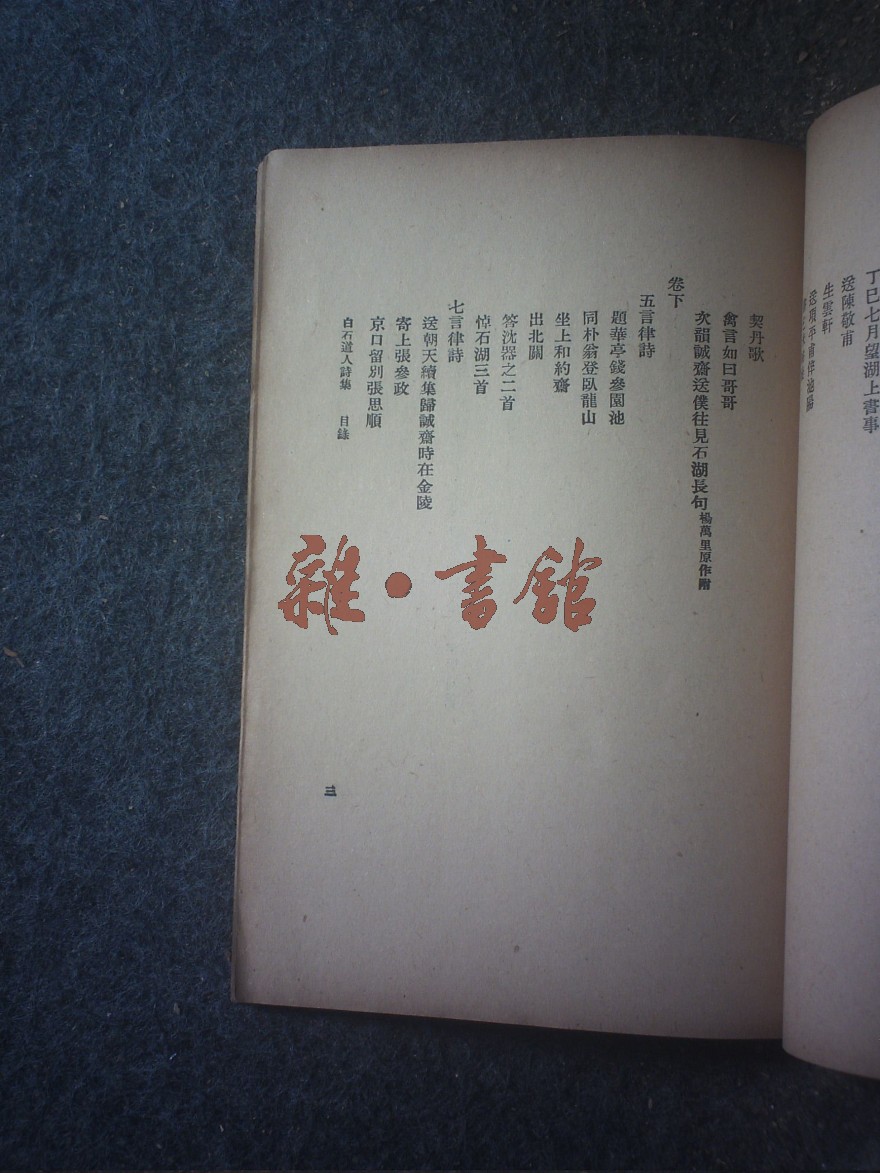 丁巳七月望湖上書事
送陳敬甫
生雲軒
契丹歌
禽言如曰哥哥
次韻誠齋送僕往見石湖長句楊萬里原作附
卷下
五言律詩
題華亭錢參園池
同朴翁登臥龍山
坐上和約齋
出北關
答沈器之二首
悼石湖三首
七言律詩
送朝天續集歸誠齋時在金陵
寄上張參政
京口留別張思順
白石道人詩集 目錄
三
雜·書館